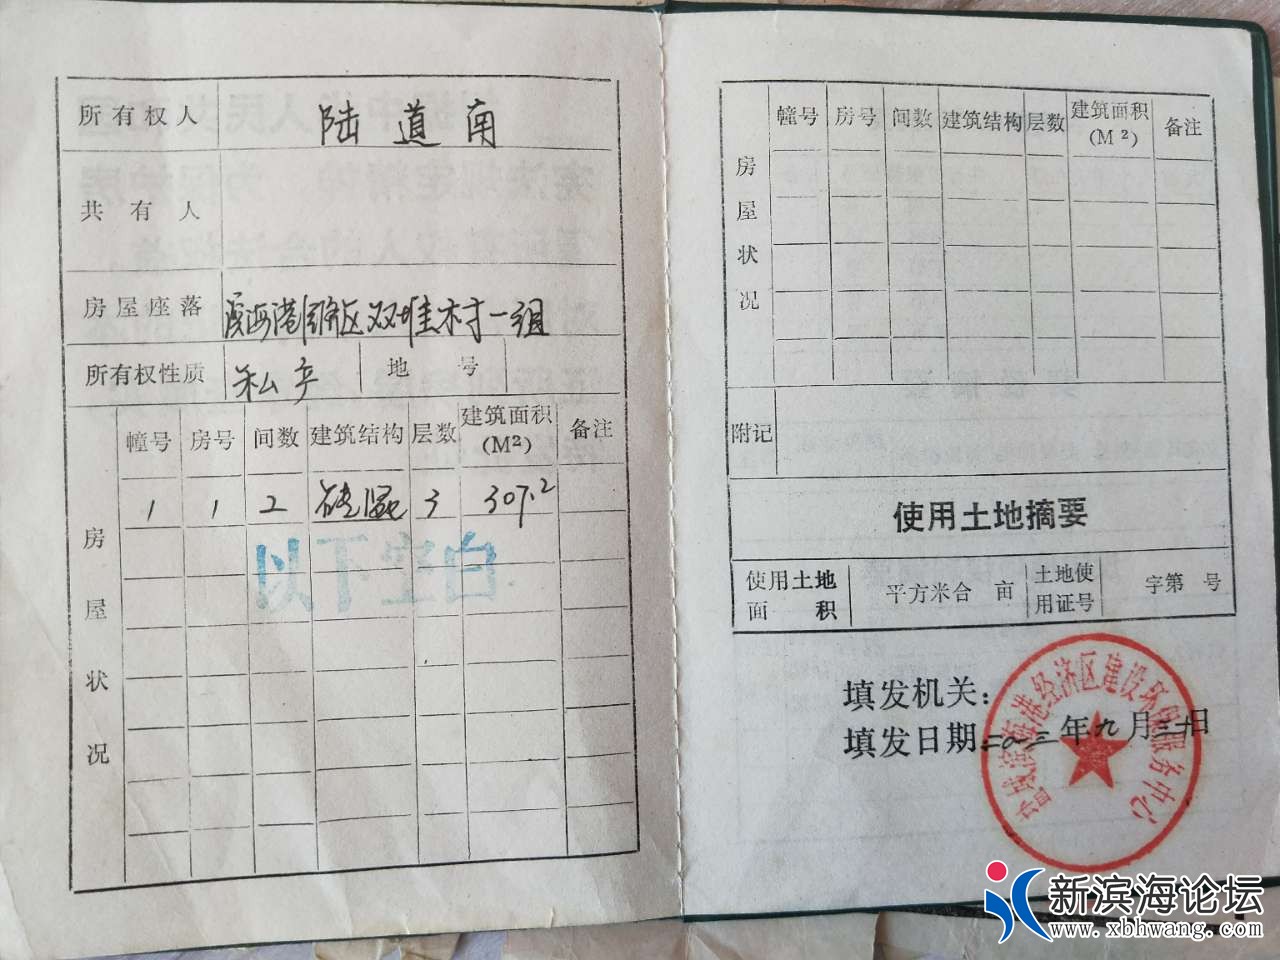 所有权人 陆道南
共有人
房屋座落 滨海港经济区双堆村一组
所有权性质 私产 地号
房屋状况
幢号 房号 间数 建筑结构 层数 建筑面积(M²) 备注
1 1 2 砖混 3 307.2
以下空白
房屋状况
幢号 房号 间数 建筑结构 层数 建筑面积(M²) 备注
附记
使用土地摘要
使用土地面积 平方米合 亩 土地使用证号 字第 号
填发机关：
填发日期 二0一三年九月三十日
盐城滨海港经济区建设环保服务中心
新滨海论坛
www.xbhwang.com